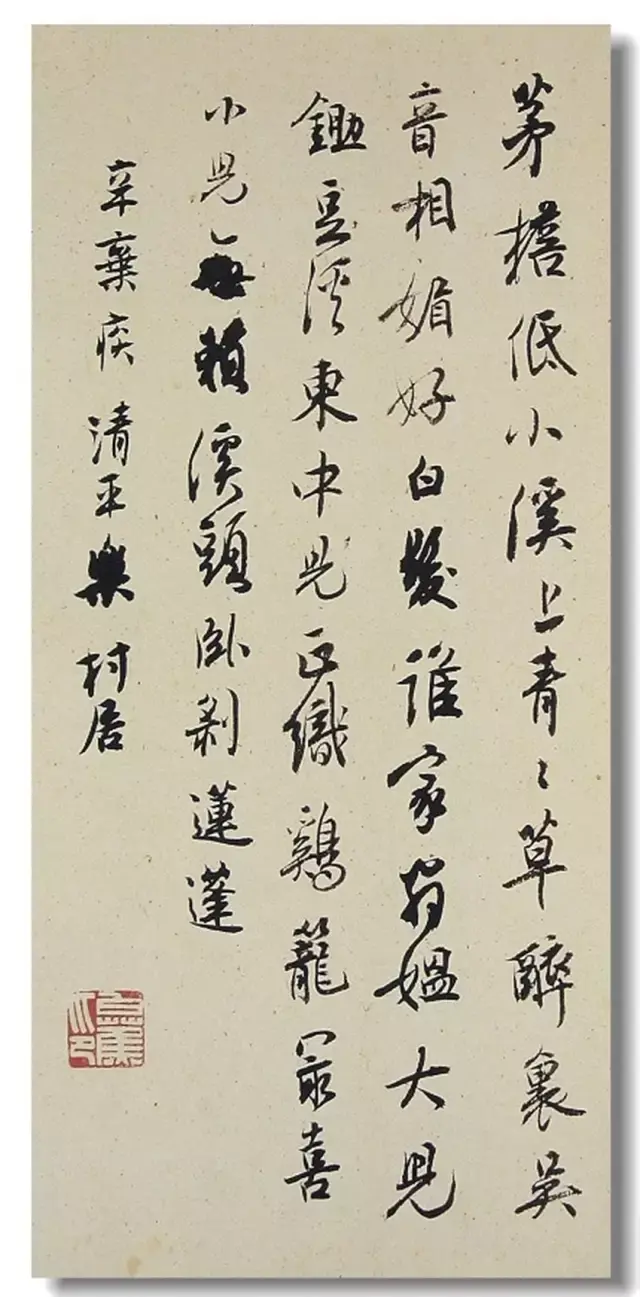 茅檐低小溪上青々草醉裏吳
音相媚好白髮誰家翁媼大兒
鋤豆溪東中兒正織鷄籠冣喜
小兒無賴溪頭卧剥蓮蓬
辛棄疾清平樂村居